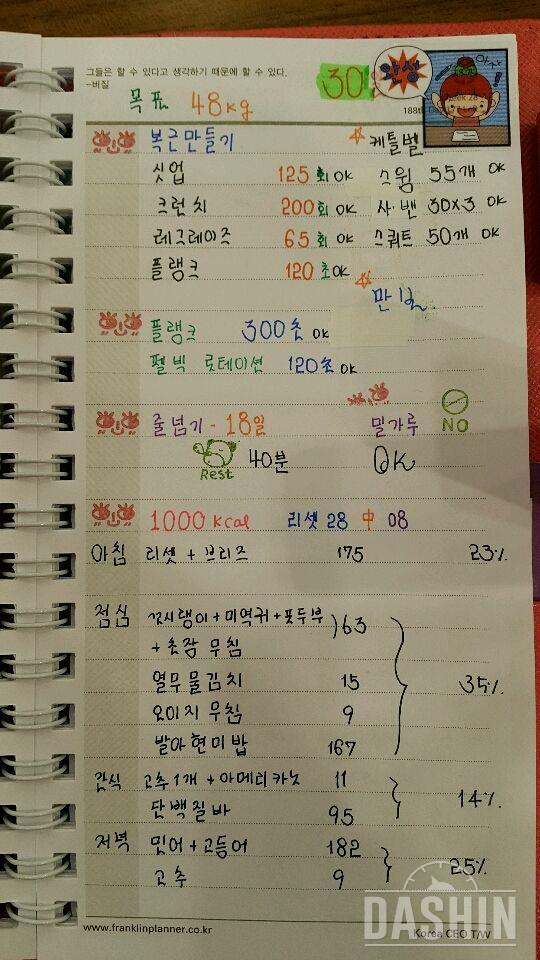 그들은 할 수 있다고 생각하기 때문에 할 수 있다.
-버질
목표 48kg
30일
완성
아자
188th
복근만들기 케틀벨
싯업 125회 OK 스윙 55개 OK
크런치 200회 OK 사·밴 30x3 OK
레그레이즈 65회 OK 스쿼트 50개 OK
플랭크 120초 OK
플랭크 300초 OK
펠빅 로테이션 120초 OK
줄넘기 - 18일 밀가루 NO
Rest 40분 OK
1000 kcal 리셋 28 中 08
아침 리셋 + 브리즈 175 23%
점심 꼬시래이+미역귀+풋두부 )63
+ 초장 무침
열무물김치 15 35%
오이지 무침 9
발아현미밥 167
간식 고추1개 + 아메리카노 11 14%
단백질바 95
저녁 민어+고등어 182 25%
고추 9
www.franklinplanner.co.kr
Korea CEO T/W
DASHIN